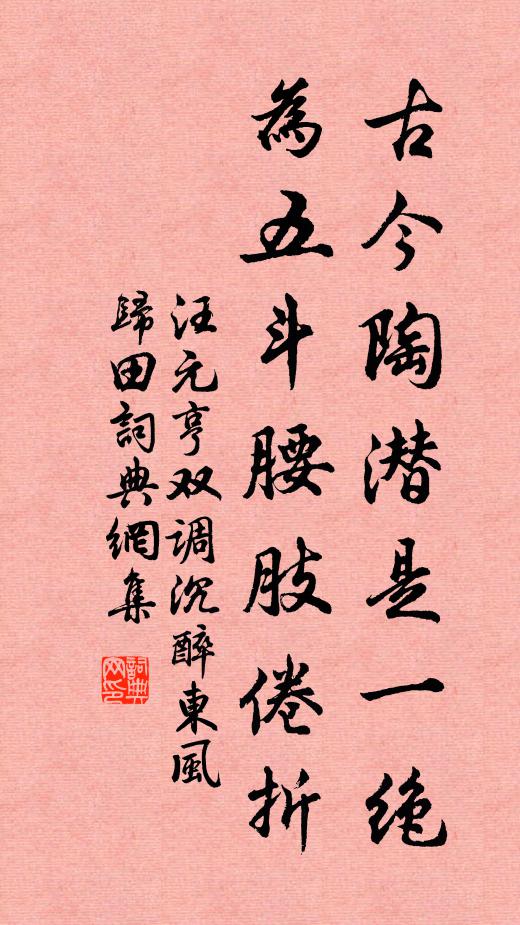 古今陶潜是一绝
為五斗腰肢倦折
汪元亨双调沉醉東風
歸田詞典網集
詞典网印